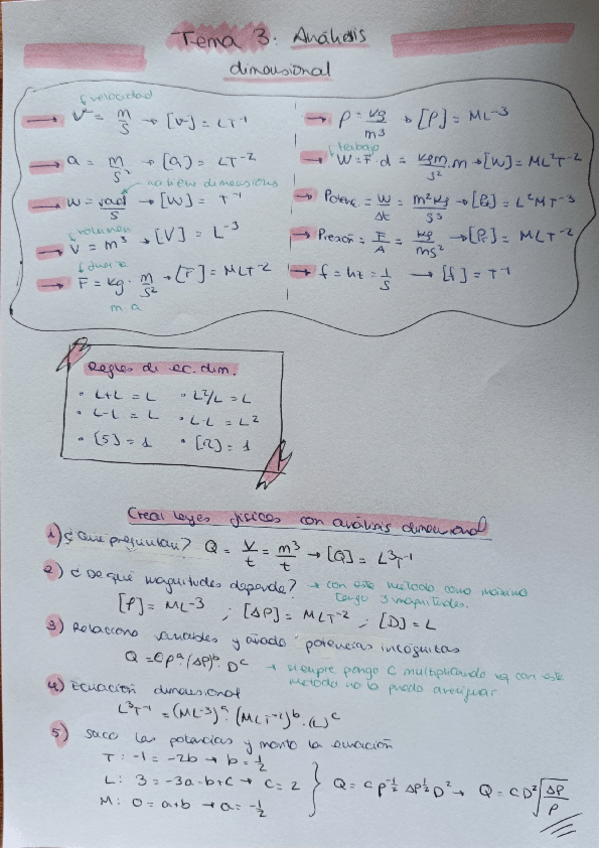 Tema 3: Análisis
dimensional
velocidad
→ v = m/s → [v] = LT⁻¹
→ a = m/s² → [a] = LT⁻²
no tiene dimensions
→ w = rad/s → [W] = T⁻¹
volumen
→ V = m³ → [V] = L⁻³
fuerza
→ F = kg · m/s² → [F] = MLT⁻²
m·a
→ ρ = kg/m³ → [ρ] = ML⁻³
trabajo
→ W = F · d = kgm/s² · m → [W] = ML²T⁻²
→ Potenc. = W/Δt = m²kg/s³ → [Po] = L²MT⁻³
→ Presión = F/A = kg/ms² → [Pr] = MLT⁻²
→ f = hz = 1/s → [f] = T⁻¹
Reglas de ec. dim.
· L+L = L · L²/L = L
· L-L = L · L·L = L²
· [5] = 1 · [2] = 1
Crear leyes físicas con análisis dimensional
1) ¿Qué preguntan? Q = V/t = m³/t → [Q] = L³T⁻¹
2) ¿De qué magnitudes depende? → con este método como máximo
tengo 3 magnitudes.
[ρ] = ML⁻³ ; [ΔP] = MLT⁻² ; [D] = L
3) Relaciono variables y añado potencias incógnitas
Q = Cρᵃ·(ΔP)ᵇ·Dᶜ → siempre pongo C multiplicando xq con este
método no la puedo averiguar
4) Ecuación dimensional
L³T⁻¹ = (ML⁻³)ᵃ · (MLT⁻²)ᵇ · (L)ᶜ
5) Saco las potencias y monto la ecuación
T: -1 = -2b → b = 1/2
L: 3 = -3a-b+c → c = 2 } Q = Cρ^-1/2 ΔP^1/2 D² → Q = CD²√ΔP/ρ
M: 0 = a+b → a = -1/2